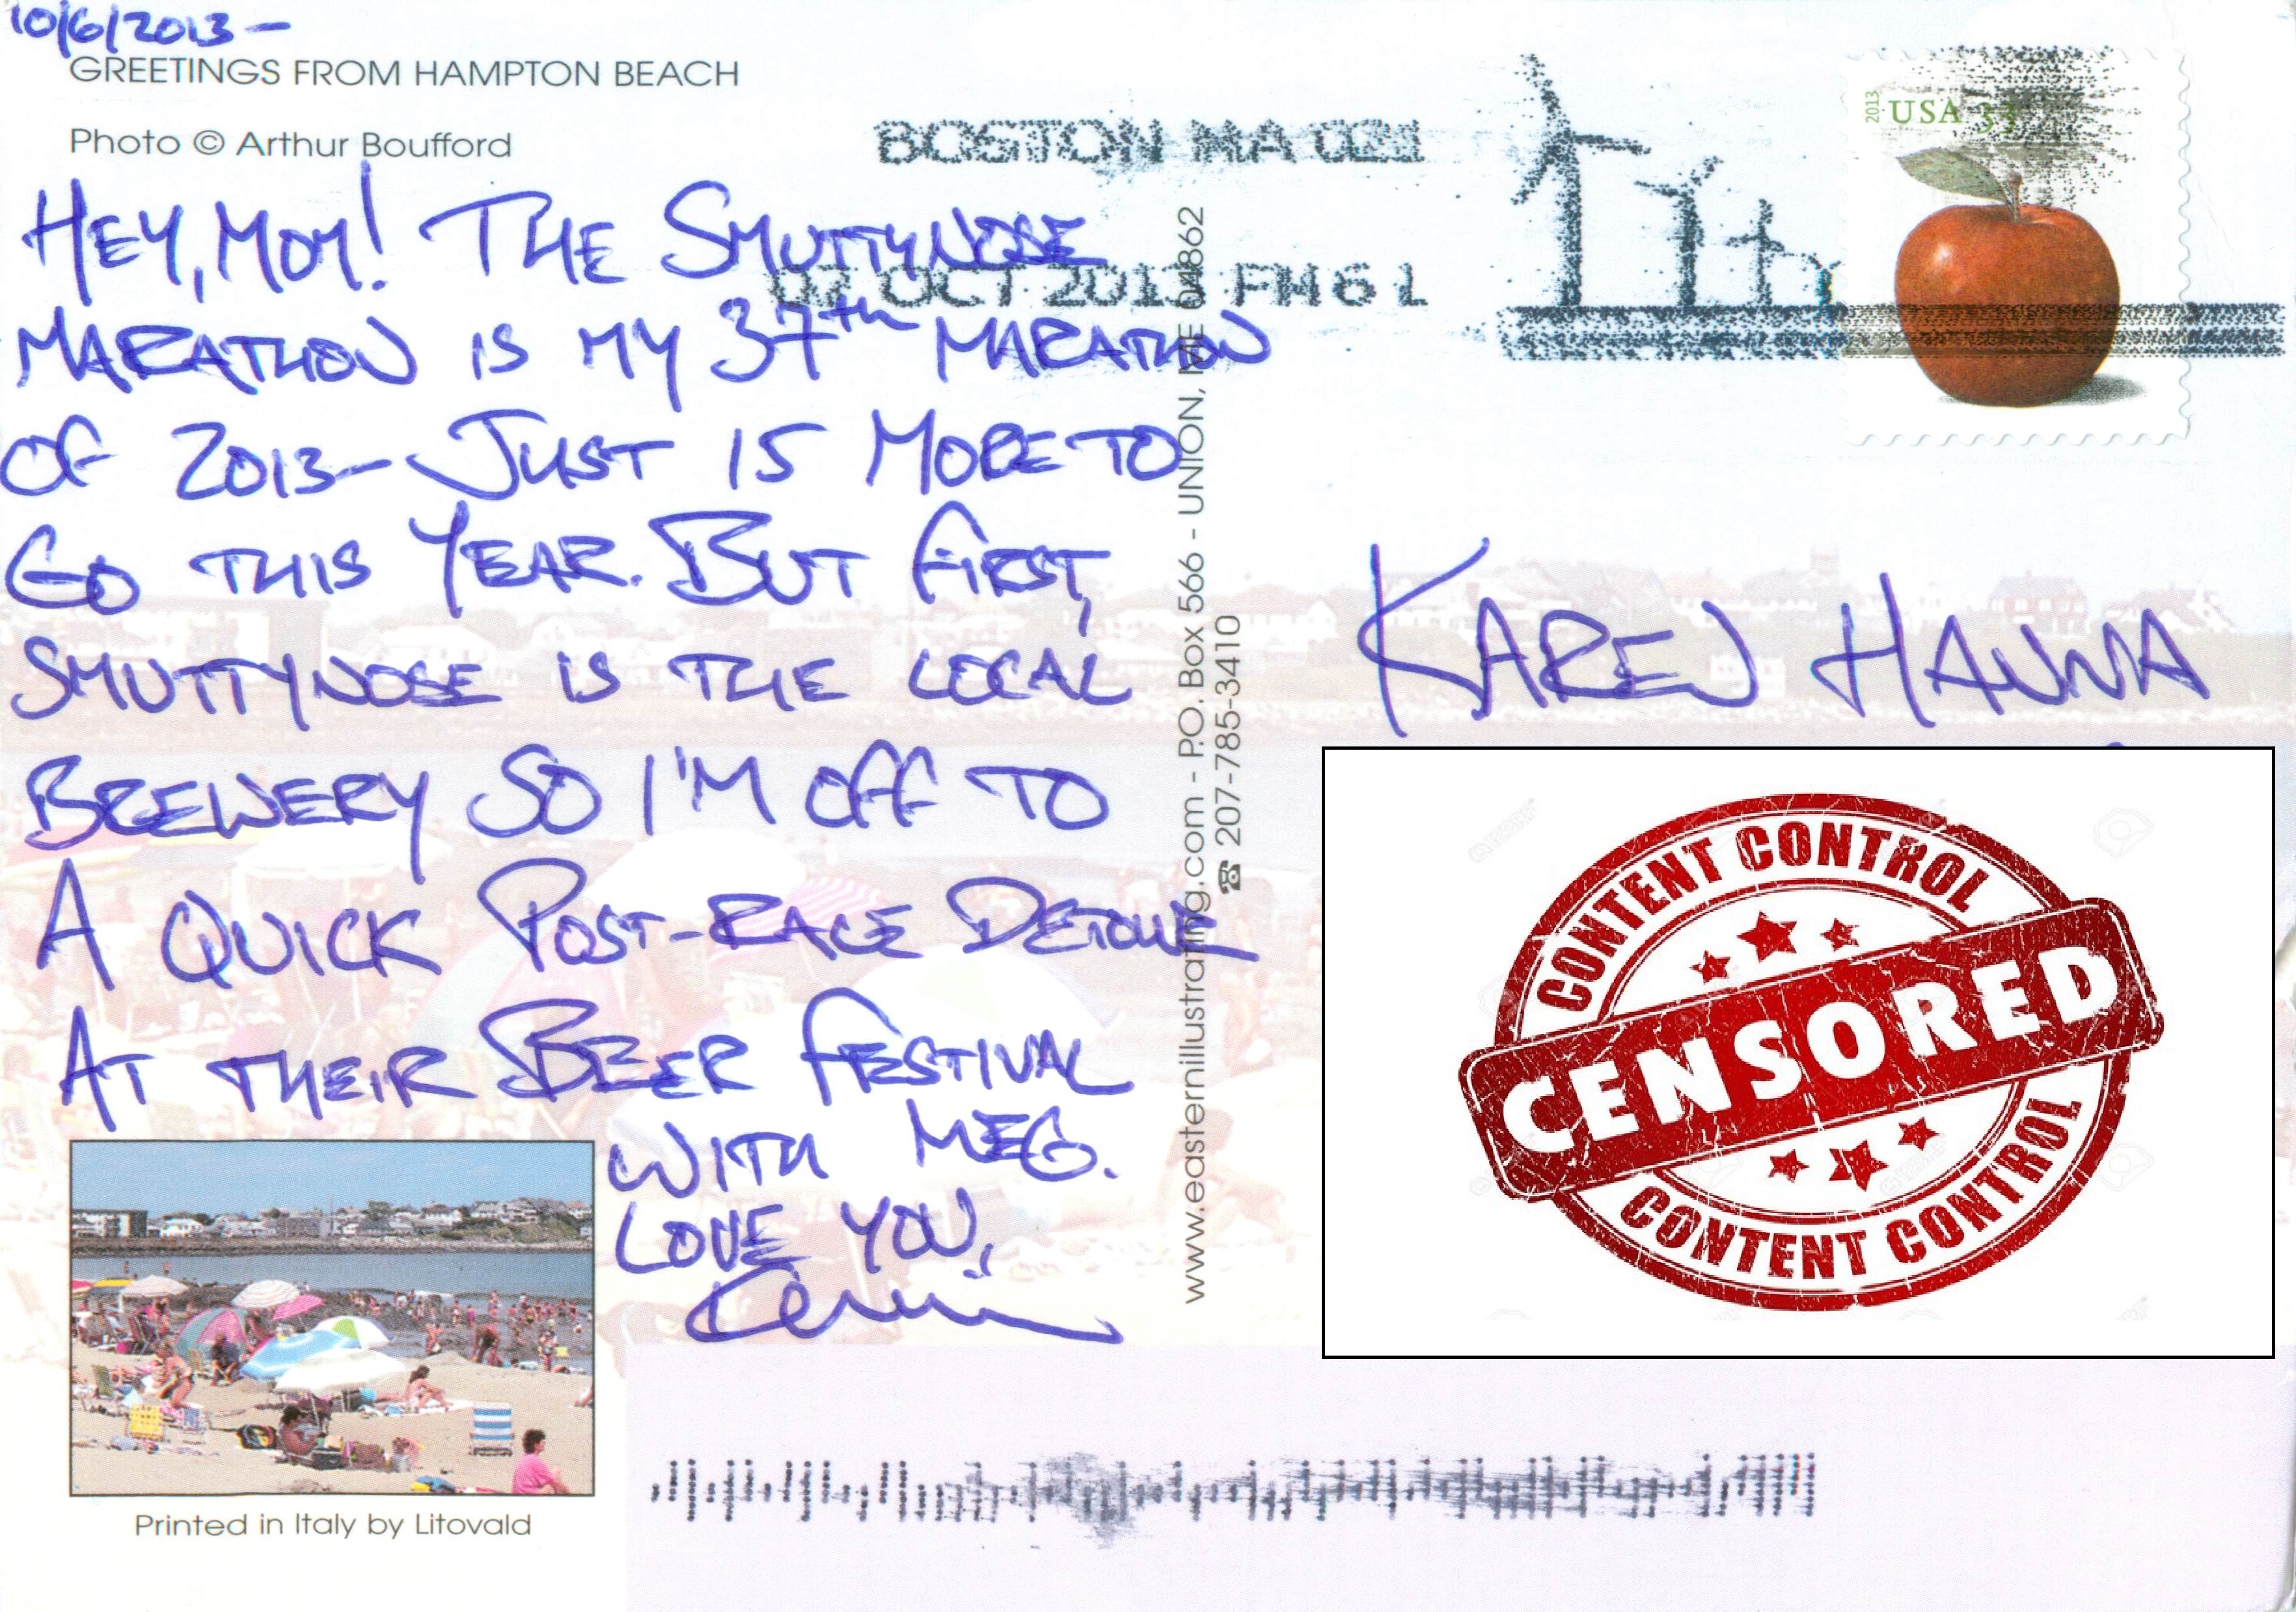 10/6/2013-
GREETINGS FROM HAMPTON BEACH
Photo © Arthur Boufford
HEY, MOM! THE SMUTTYNOSE
MARATHON IS MY 37th MARATHON
OF 2013- JUST 15 MORE TO
GO THIS YEAR. BUT FIRST,
SMUTTYNOSE IS THE LOCAL
BREWERY SO I'M OFF TO
A QUICK POST-RACE DETOUR
AT THEIR BEER FESTIVAL
WITH MEG.
LOVE YOU,
Printed in Italy by Litovald
www.easternillustrating.com - P.O. Box 566 - UNION, ME 04862
☎ 207-785-3410
BOSTON MA 021
07 OCT 2013 PM 6 L
2013 USA
KAREN HANNA
CONTENT CONTROL
CENSORED
CONTENT CONTROL